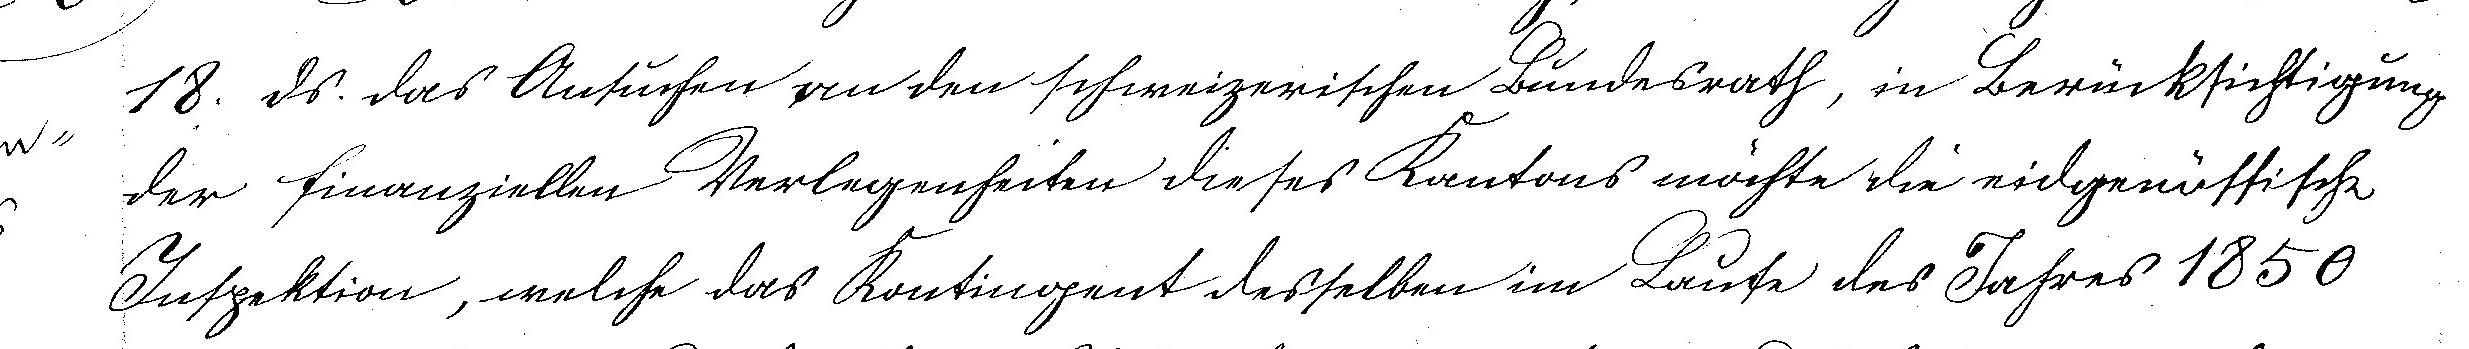 18. ds. das Ansuchen an den schweizerischen Bundesrath, in Berücksichtigung
der finanziellen Verlegenheiten dieses Kantons möchte die eidgenössische
Inspektion, welche das Kontingent desselben im Laufe des Jahres 1850